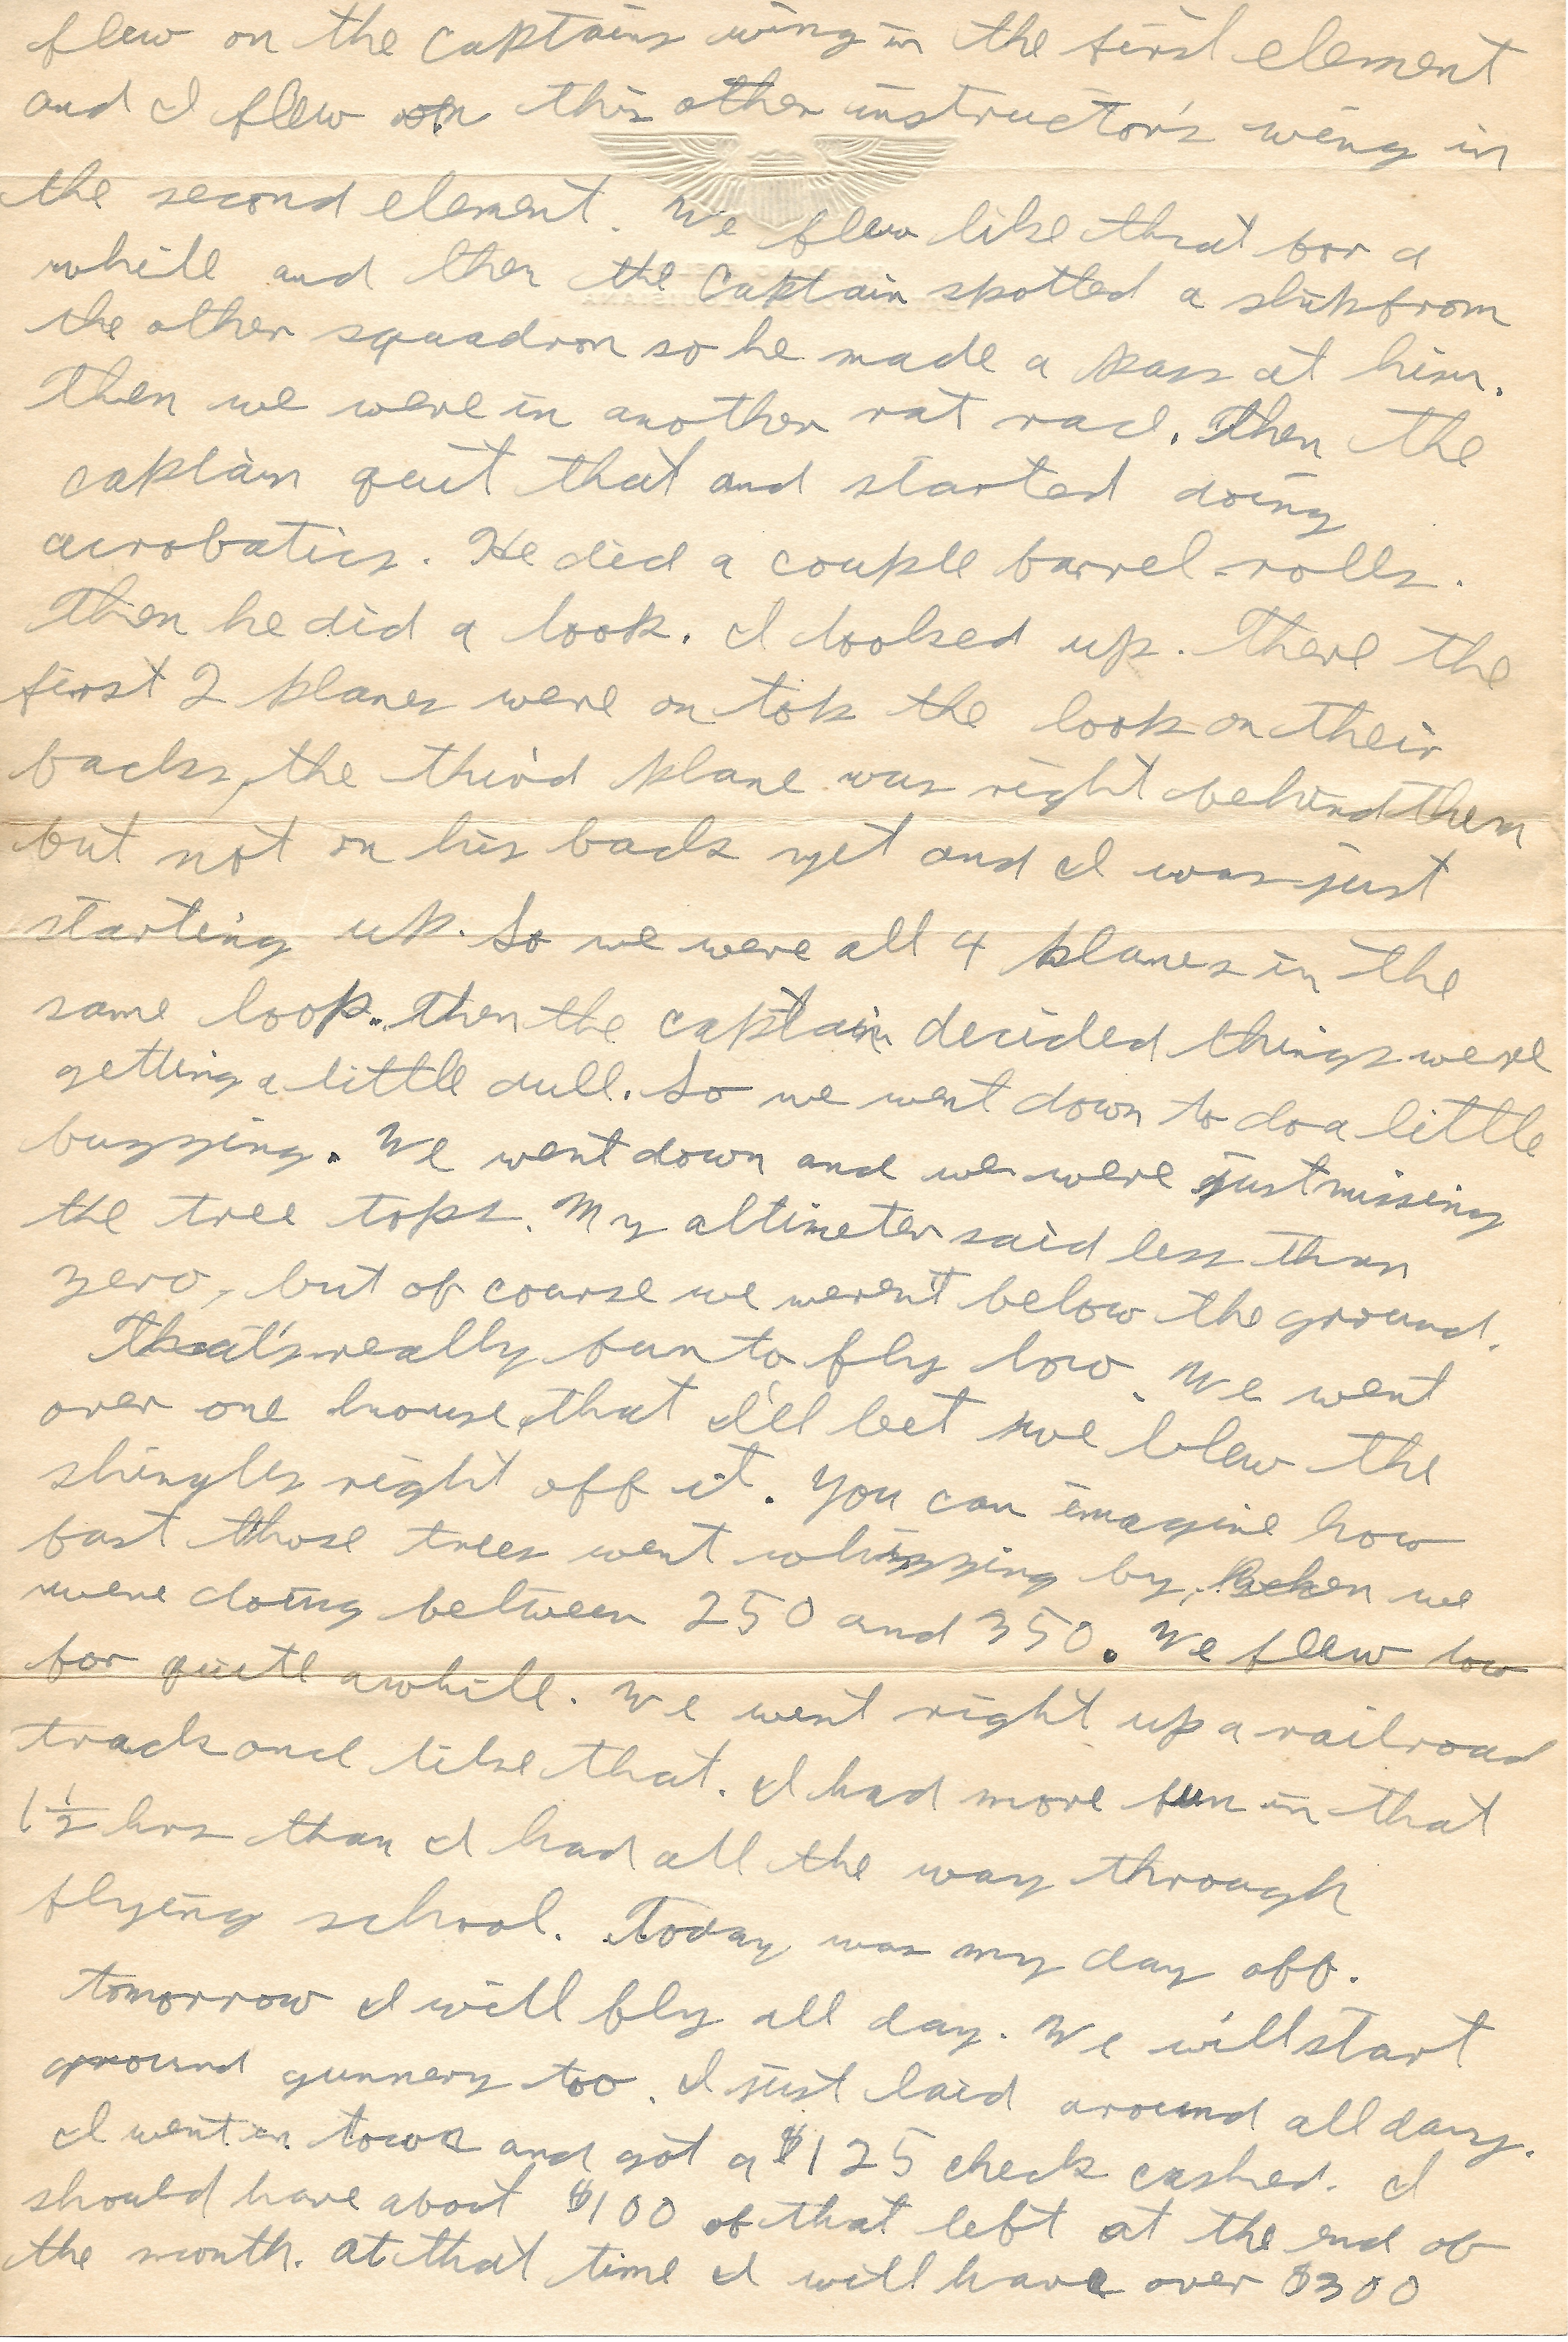 flew on the captains wing in the first element
and I flew on this other instructor's wing in
the second element. We flew like that for a
while and then the Captain spotted a ship from
the other squadron so he made a pass at him.
Then we were in another rat race. Then the
captain quit that and started doing
acrobatics. He did a couple barrel rolls.
Then he did a loop. I looked up. There the
first 2 planes were on top the loop on their
backs, the third plane was right behind them
but not on his back yet and I was just
starting up. So we were all 4 planes in the
same loop. Then the captain decided things were
getting a little dull. So we went down to do a little
buzzing. We went down and we were just missing
the tree tops. My altimeter said less than
zero, but of course we weren't below the ground.
That's really fun to fly low. We went
over one house that I'll bet we blew the
shingles right off it. You can imagine how
fast those trees went whizzing by, when we
were doing between 250 and 350. We flew low
for quite awhile. We went right up a railroad
track and like that. I had more fun in that
1½ hrs than I had all the way through
flying school. Today was my day off.
tomorrow I will fly all day. We will start
ground gunnery too. I just laid around all day.
I went in town and got a $125 check cashed. I
should have about $100 of that left at the end of
the month. at that time I will have over $300